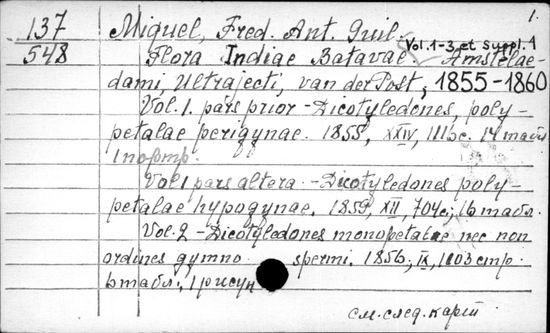 1.
137
548
Miquel, Fred. Ant. Guil.
Flora Indiae Batavae Vol. 1-3 et Suppl. 1 Amstelae-
dami, Ultrajecti, van der Post, 1855-1860
Vol. 1. pars prior - Dicotyledones, poly-
petalae perigynae. 1855, XXIV, 1113 с. 14 табл
1 портр.
Vol 1 pars altera. - Dicotyledones poly-
petalae hypogynae. 1859, XII, 704 с; 16 табл.
Vol. 2 - Dicotyledones monopetalae nec non
ordines gymno spermi. 1856, IX, 1103 стр.
6 табл., 1 рисун
см. след. карт